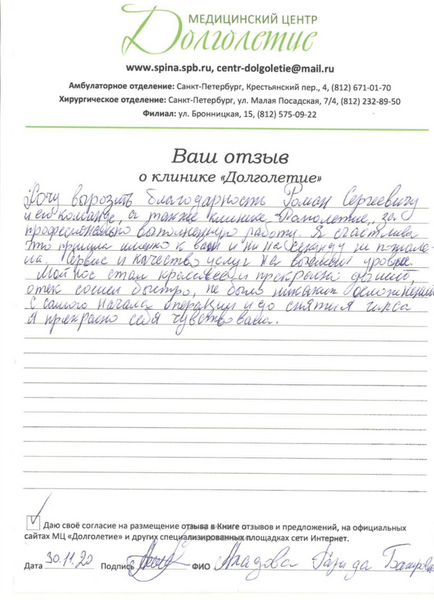 МЕДИЦИНСКИЙ ЦЕНТР
Долголетие
www.spina.spb.ru, centr-dolgoletie@mail.ru
Амбулаторное отделение: Санкт-Петербург, Крестьянский пер., 4, (812) 671-01-70
Хирургическое отделение: Санкт-Петербург, ул. Малая Посадская, 7/4, (812) 232-89-50
Филиал: ул. Бронницкая, 15, (812) 575-09-22
Ваш отзыв
о клинике «Долголетие»
Хочу вырозить благодарность Роман Сергеевичу
и ей команде, а также клинике Долголетие, за
профессионально выполненную работу. Я счастлива
что пришла именно к вам и ни на секунду не п-жале-
ла. Сервис и качество услуг на высшем уровне.
Мой нос стал красивее и прекрасно дышит,
отек сошел быстро, не было никаких осложнений
с самого начала операции и до снятия гипса
я прекрасно себя чувствовала.
Даю своё согласие на размещение отзыва в Книге отзывов и предложений, на официальных
сайтах МЦ «Долголетие» и других специализированных площадках сети Интернет.
Дата 30.11.20 Подпись ФИО